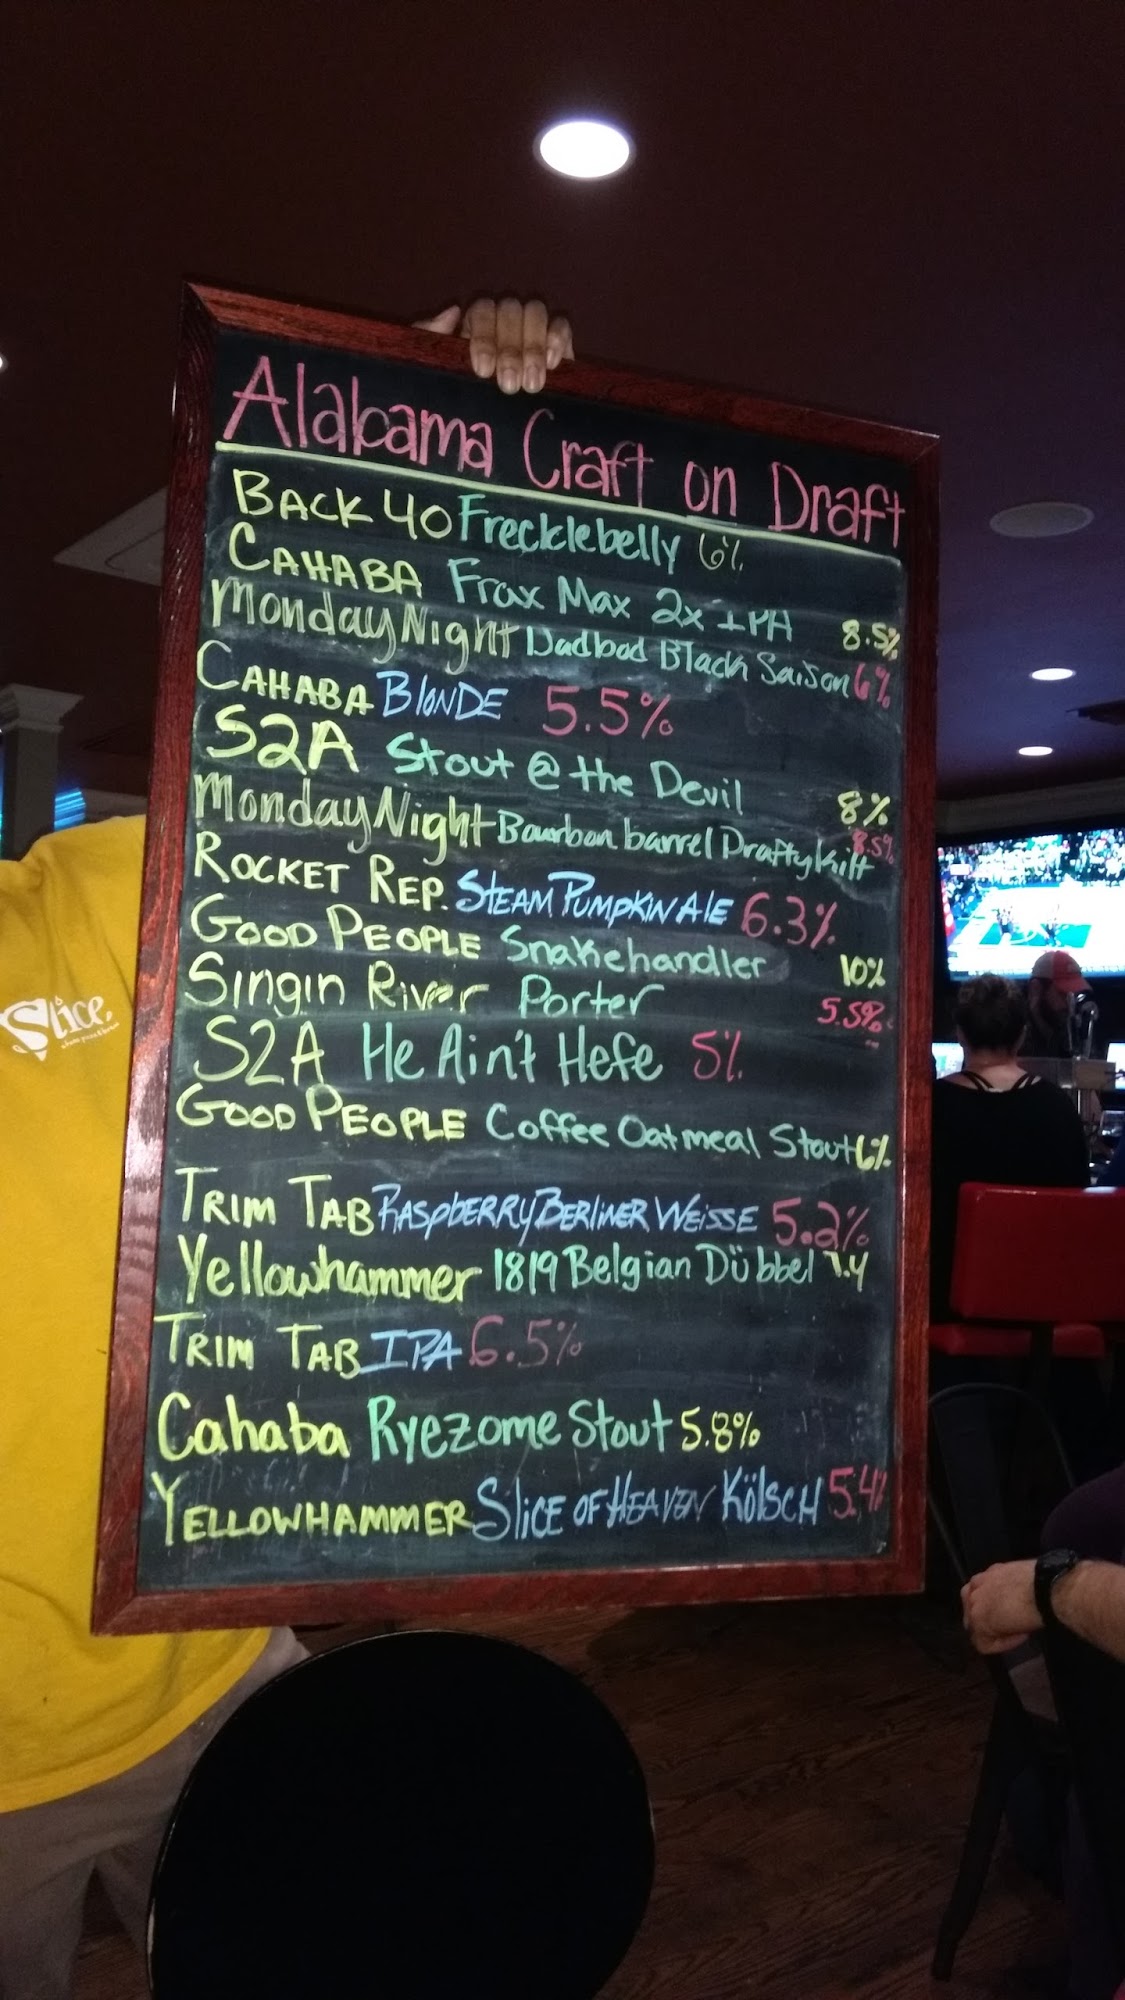 Alabama Craft on Draft
BACK 40 Frecklebelly 6%
CAHABA Frax Max 2x IPA 8.5%
Monday Night Dadbod Black Saison 6%
CAHABA BLONDE 5.5%
S2A Stout @ the Devil 8%
Monday Night Bourbon barrel Drafty Kilt 8.5%
ROCKET REP. STEAM PUMPKIN ALE 6.3%
GOOD PEOPLE Snakehandler 10%
Singin River Porter 5.5%
S2A He Ain't Hefe 5%
GOOD PEOPLE Coffee Oatmeal Stout 6%
TRIM TAB RASPBERRY BERLINER WEISSE 5.2%
Yellowhammer 1819 Belgian Dübbel 7.4
TRIM TAB IPA 6.5%
Cahaba Ryezome Stout 5.8%
YELLOWHAMMER SLICE OF HEAVEN KÖLSCH 5.4%
Slice